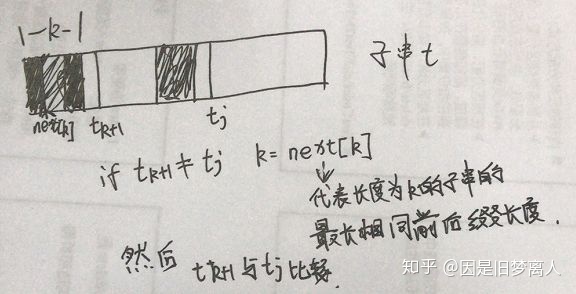 |—k—|
子串t
next[k] t_{k+1} t_j
if t_{k+1} ≠ t_j k = next[k]
代表长度为k的子串的
最长相同前后缀长度.
然后 t_{k+1}与t_j比较.
知乎 @因是旧梦离人